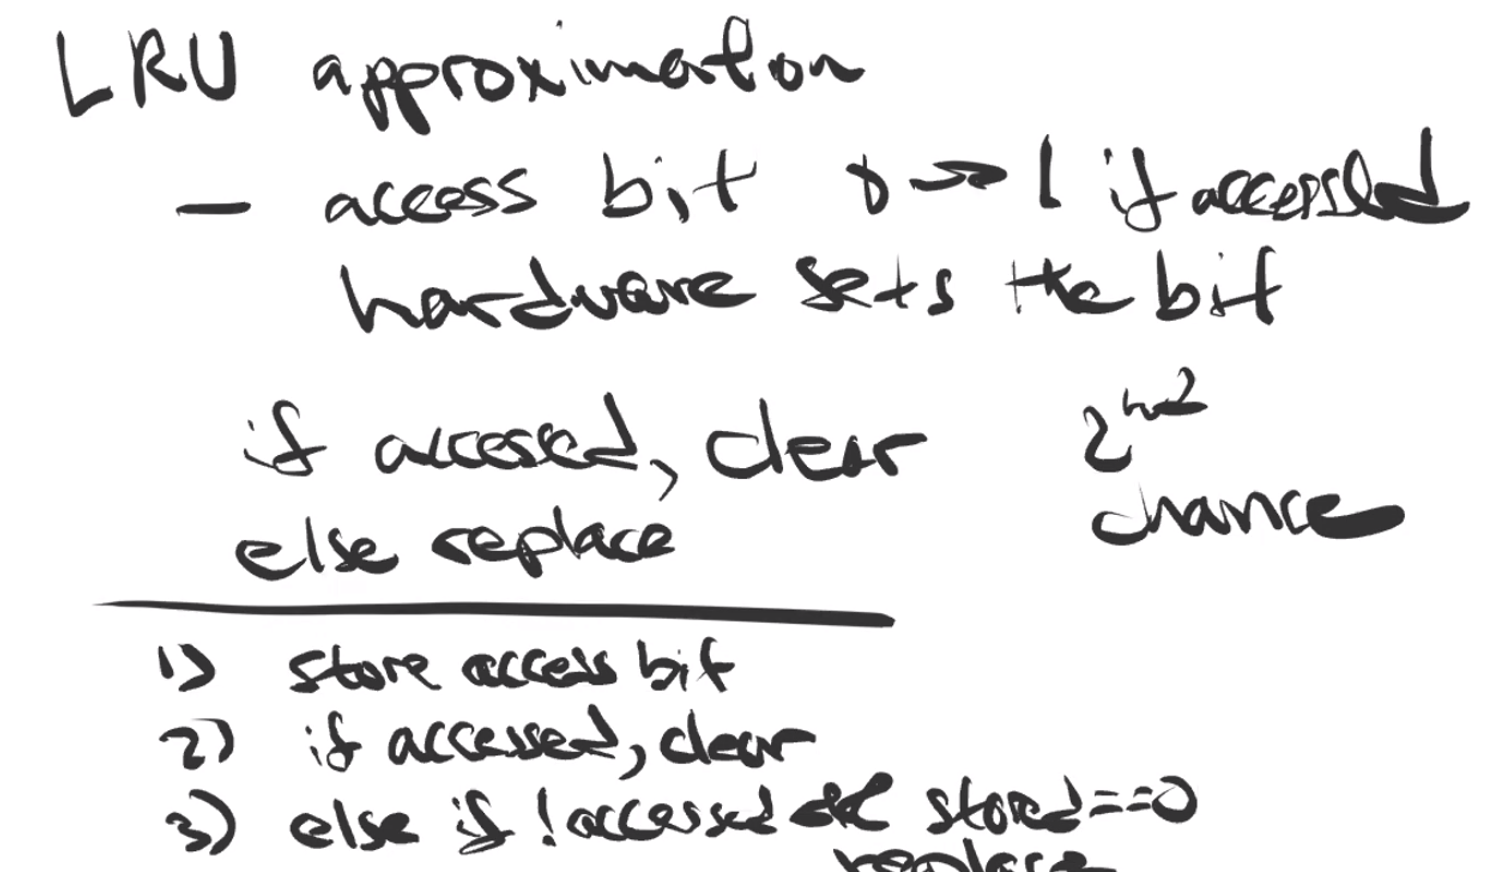 LRU approximation
- access bit 0 → 1 if accessed
hardware sets the bit
if accessed, clear
2nd
chance
else replace
1) store access bit
2) if accessed, clear
3) else if !accessed && stored==0
replace